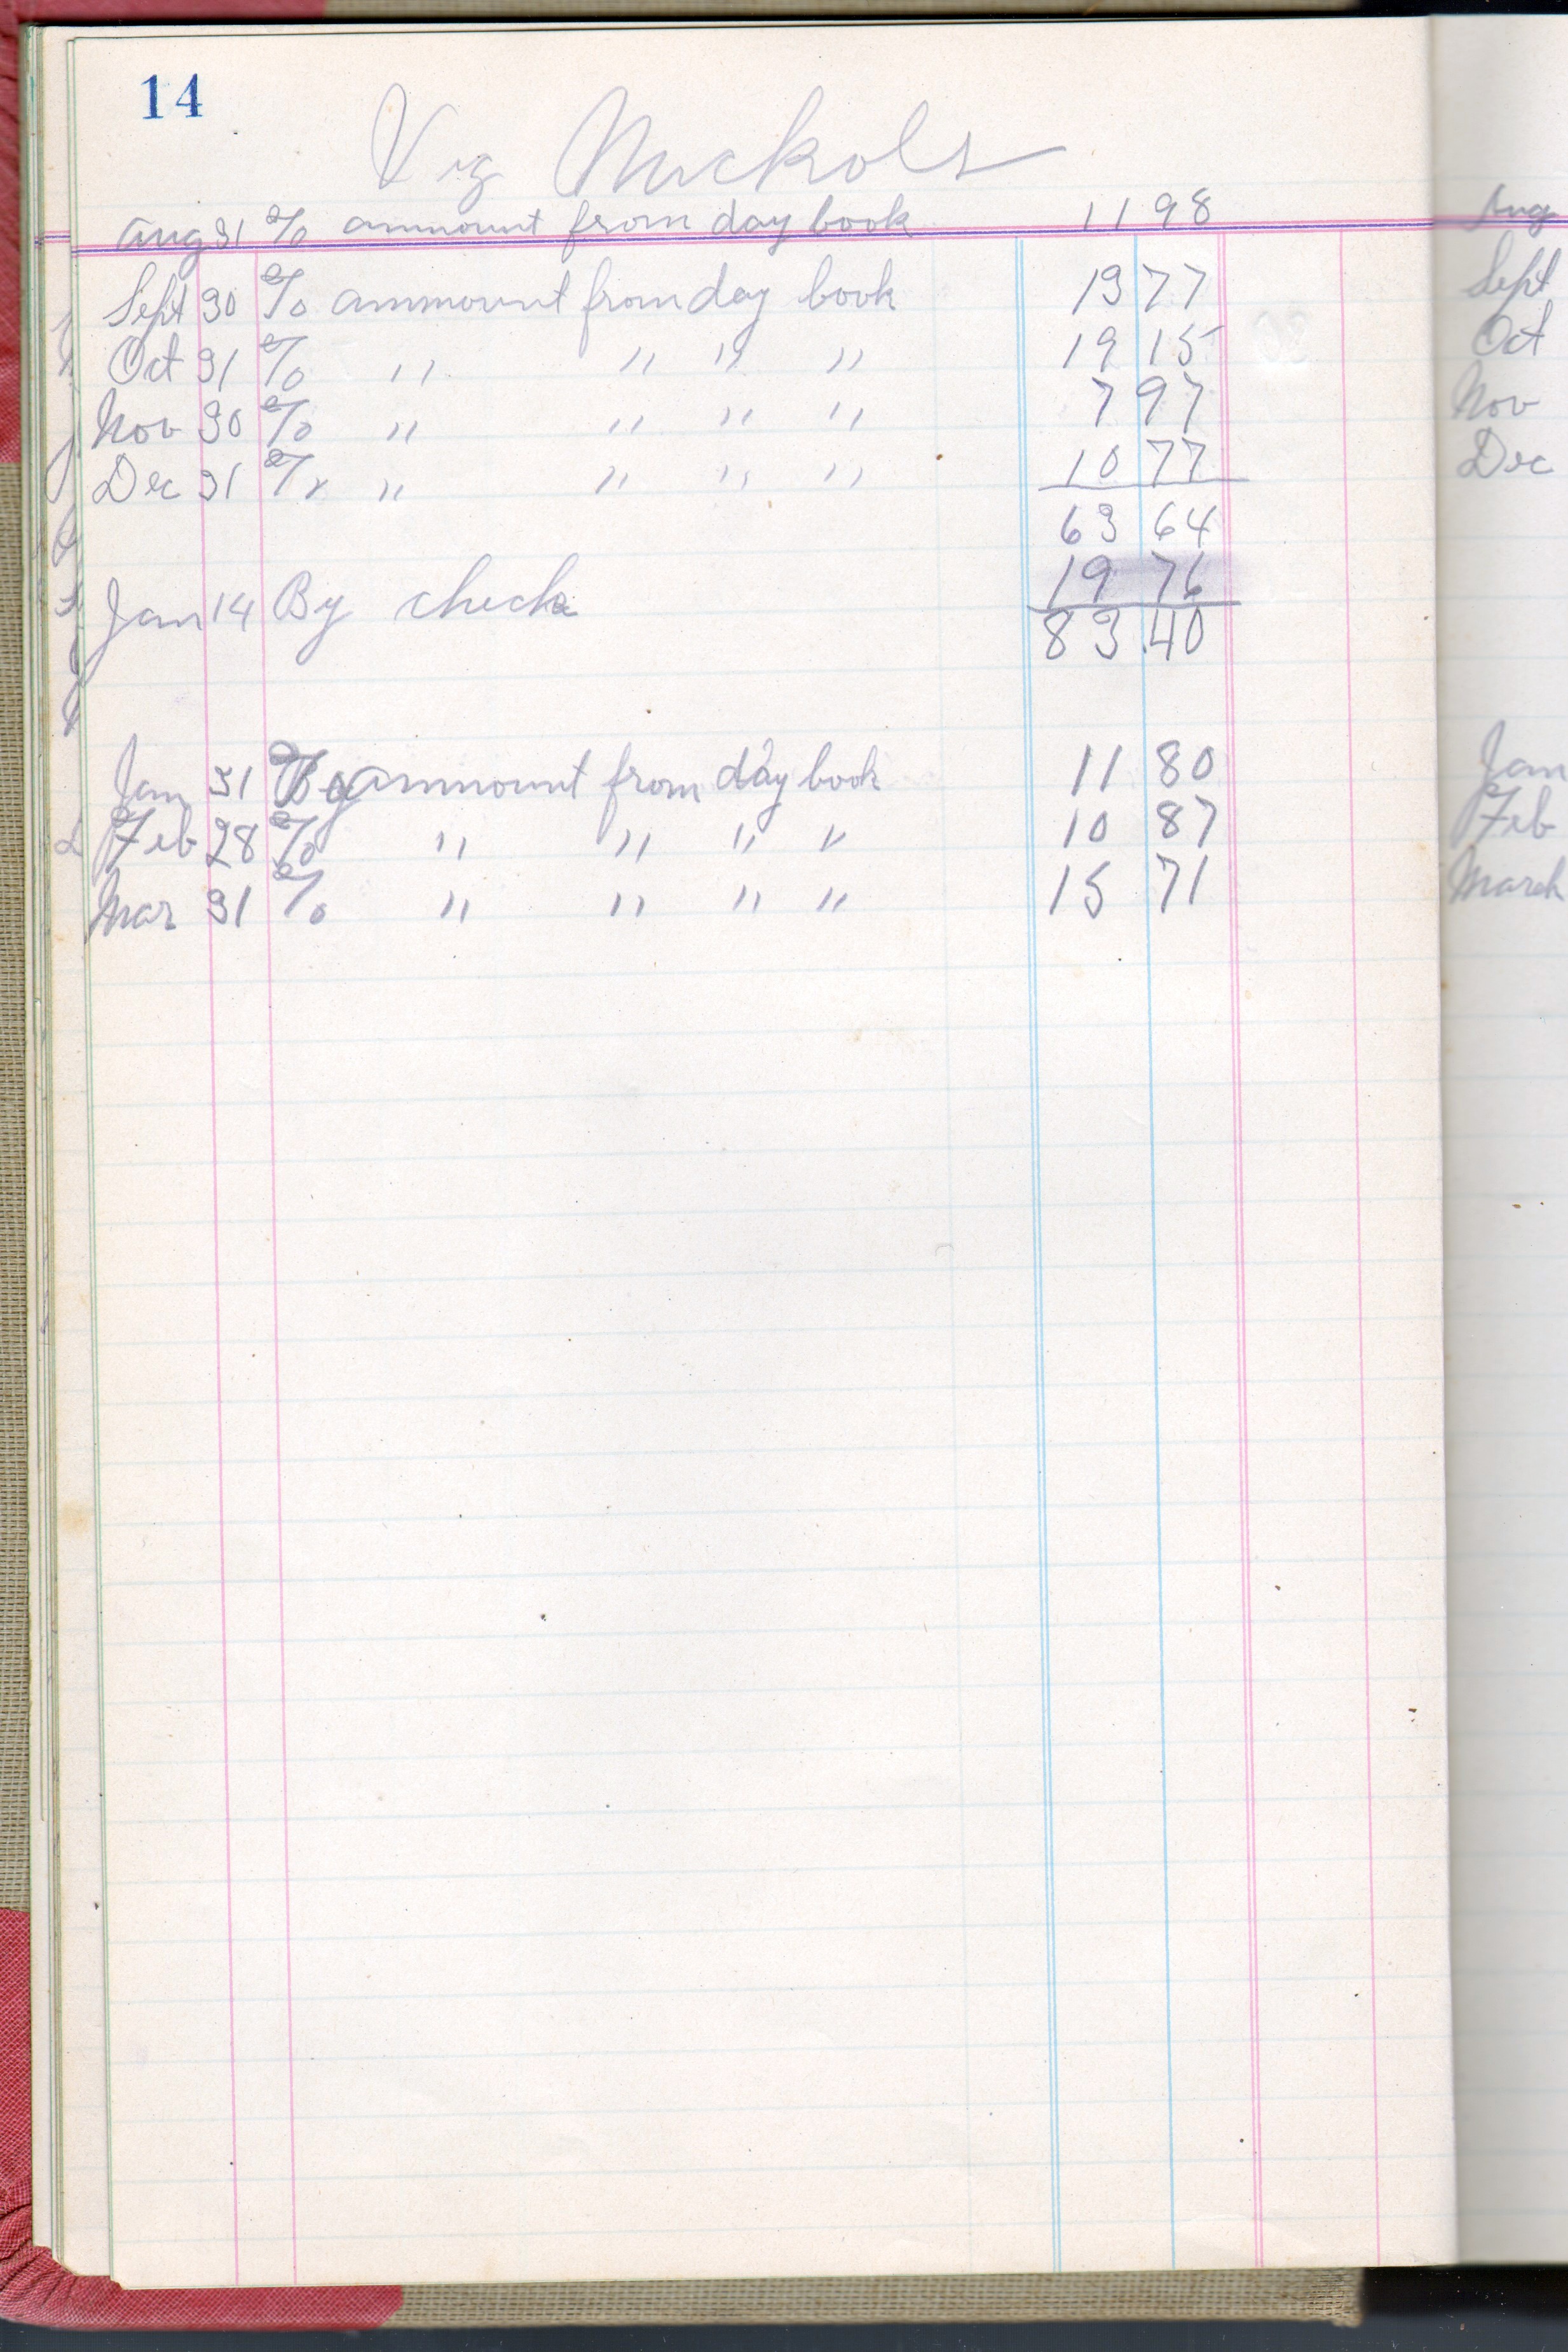 14
Vig Nuckols
Aug 31 % ammount from day book 11 98
Sept 30 % ammount from day book 13 77
Oct 31 % " " " " 19 15
Nov 30 % " " " " 7 97
Dec 31 % " " " " 10 77
63 64
19 76
Jan 14 By check
83.40
Jan 31 By ammount from day book 11 80
Feb 28 % " " " " 10 87
Mar 31 % " " " " 15 71
Aug
Sept
Oct
Nov
Dec
Jan
Feb
March